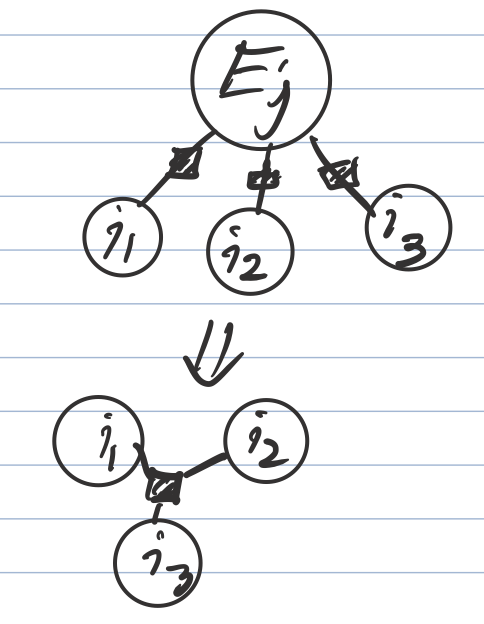 Ej
i1 i2 i3
⇓
i1 i2
i3